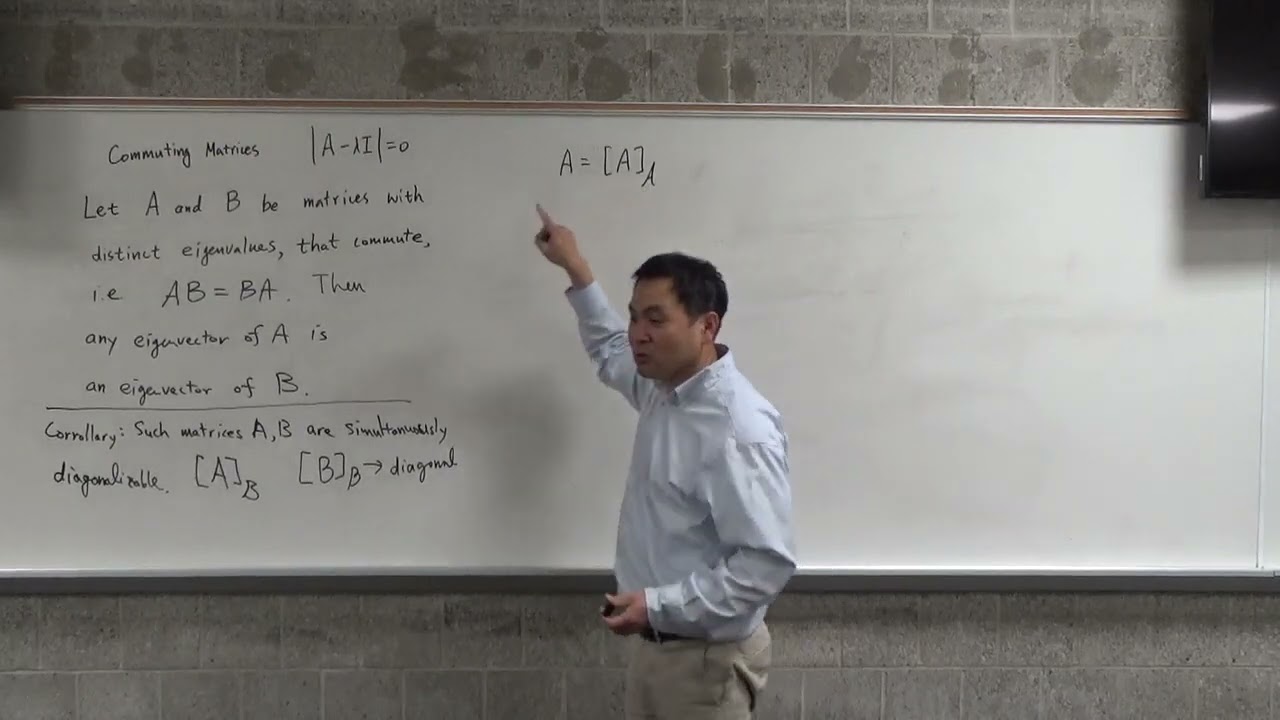 Commuting Matrices |A-λI|=0
Let A and B be matrices with
distinct eigenvalues, that commute,
i.e AB=BA. Then
any eigenvector of A is
an eigenvector of B.
Corrollary: Such matrices A,B are simultanuously
diagonalizable. [A]_B [B]_β → diagonal
A = [A]_A